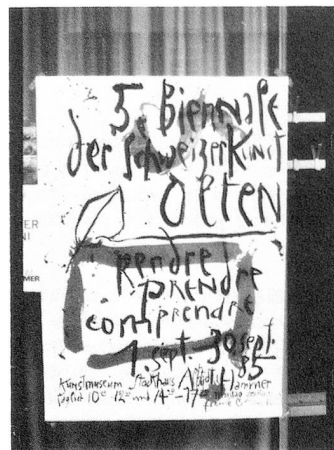 5. Biennale
der Schweizer Kunst
Olten
rendre
prendre
comprendre
1. sept. 30 sept.
85
Kunstmuseum Stadthaus
täglich 10 - 12 und 14 - 17
ER
NI
MER